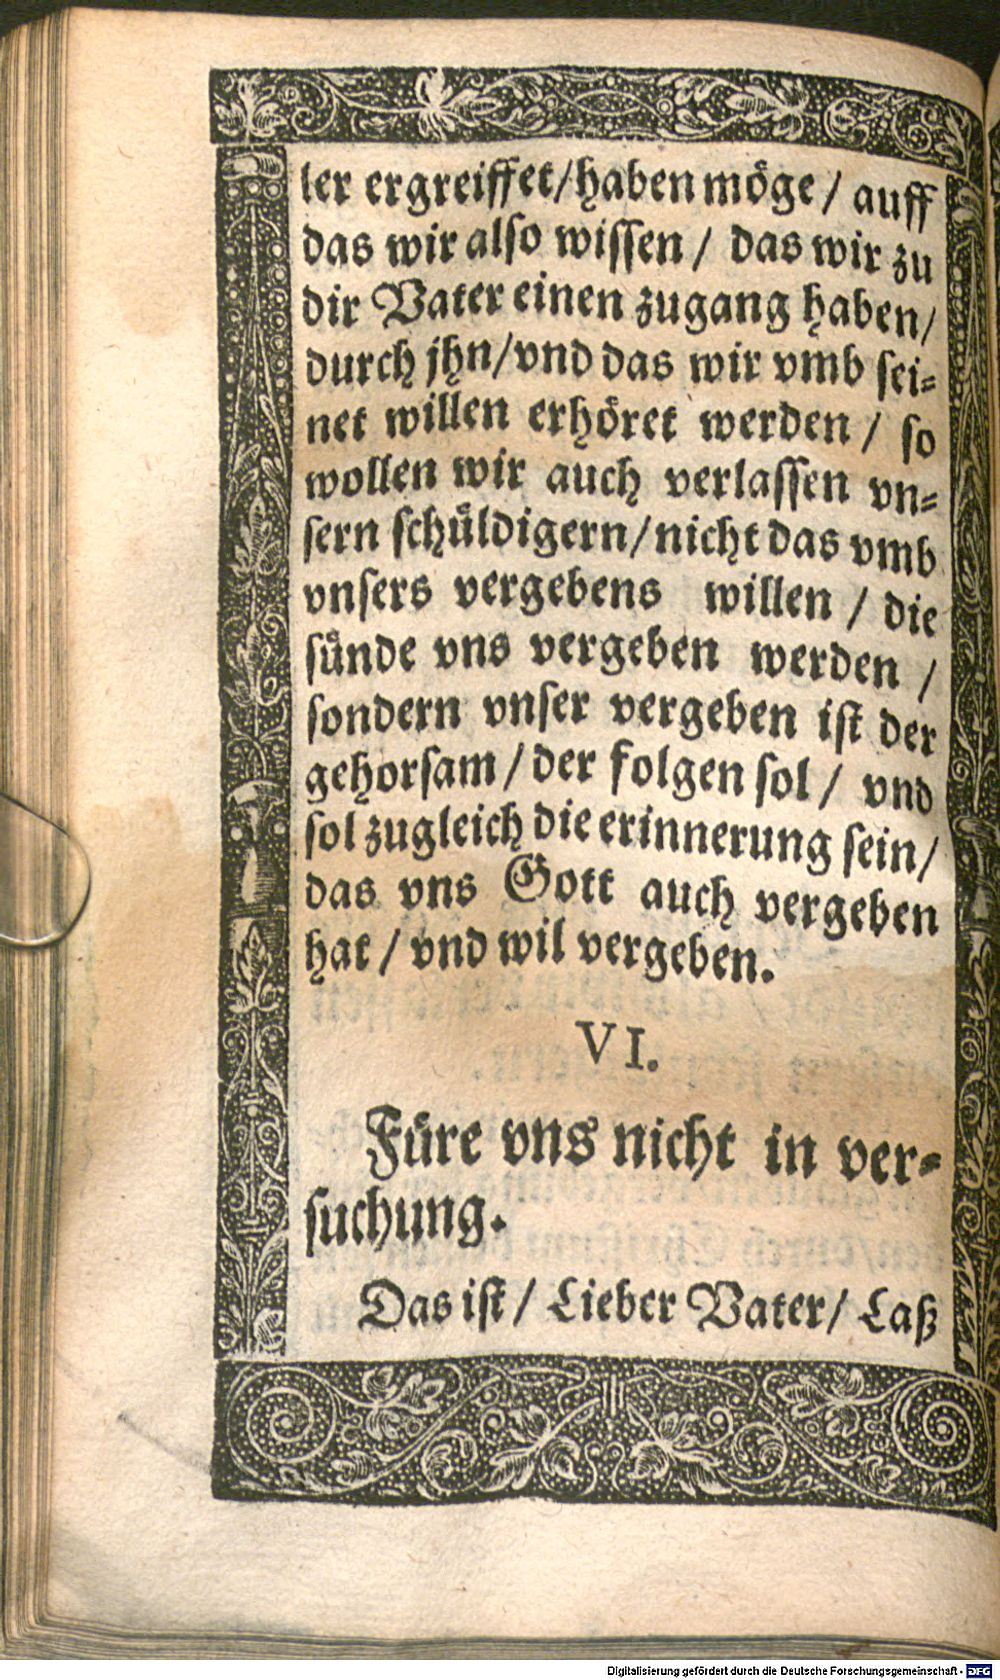 ler ergreiffet/haben möge/ auff
das wir also wissen/ das wir zu
dir Vater einen zugang haben/
durch jhn/vnd das wir vmb sei⸗
net willen erhöret werden/ so
wollen wir auch verlassen vn⸗
sern schüldigern/nicht das vmb
vnsers vergebens willen/ die
sünde vns vergeben werden/
sondern vnser vergeben ist der
gehorsam/der folgen sol/ vnd
sol zugleich die erinnerung sein/
das vns Gott auch vergeben
hat/vnd wil vergeben.
VI.
Füre vns nicht in ver⸗
suchung.
Das ist/ Lieber Vater/ Laß
Digitalisierung gefördert durch die Deutsche Forschungsgemeinschaft - DFG